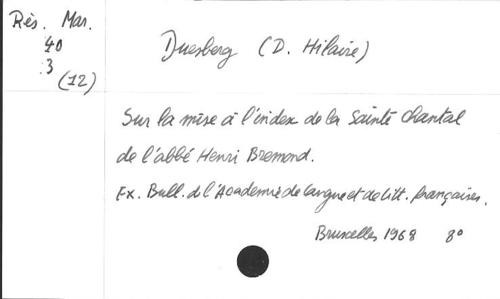 Rés. Mar.
40
3
(12)
Duesberg (D. Hilaire)
Sur la mise à l'index de la Sainte Chantal
de l'abbé Henri Bremond.
Ex. Bull. de l'Academie de langue et de litt. françaises.
Bruxelles 1968 8°